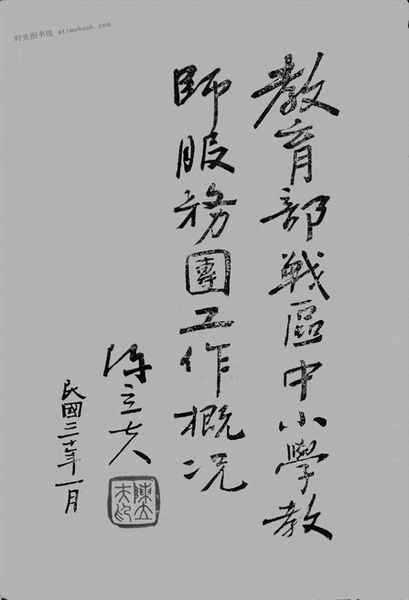 时光图书馆 etimebook.com
教育部戰區中小學教
師服務團工作概況
陳立夫
陳立夫印
民國三十年一月